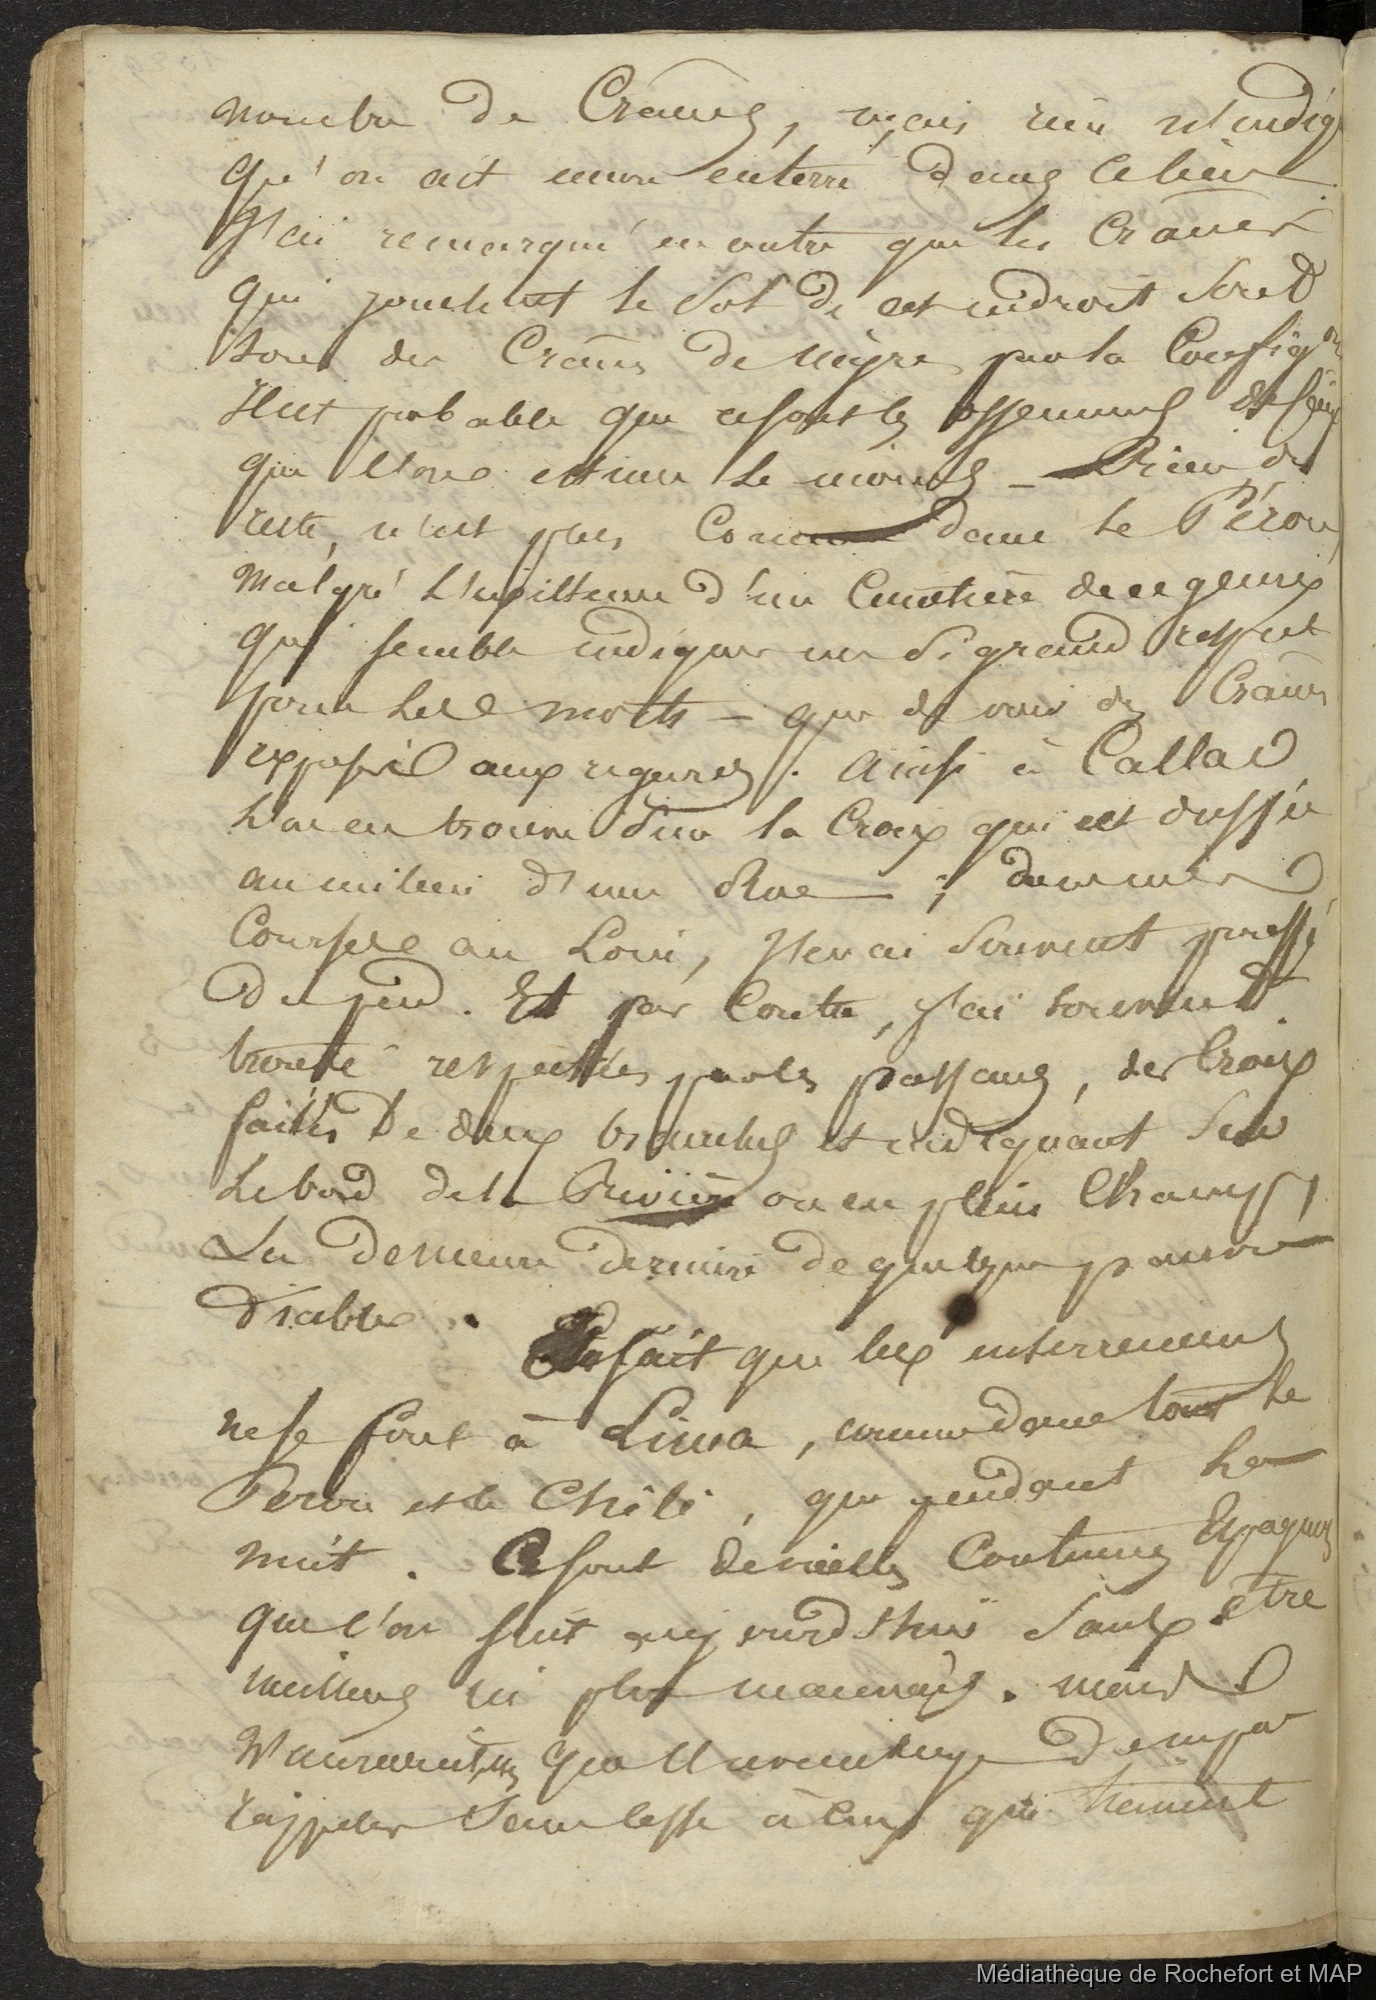 nombre de Crânes, mais rien n'indiq
qu'on ait encore enterré dans ce lieu.
J'ai remarqué en outre que les Crânes
qui jonchent le Sol de cet endroit sont
tous des Crânes de nègres par la Config
Il est probable que ce sont les ossements
que l'on estime le moins — Rien du
reste, n'est plus Commun dans le Pérou,
malgré l'existence d'un Cimetière de ce genre
qui semble indiquer un si grand respect
pour les morts — que de voir des Crânes
exposés aux regards. Ainsi à Callao
l'on en trouve sur la Croix qui est dressée
au milieu d'une Rue ; dans mes
Courses au Loin, j'en ai souvent pressé
du pied. Et par Contre, j'ai souvent
trouvé respectées par les passans, des Croix
faites De deux branches et indiquant Sur
le bord de la Rivière ou en plein Champ,
La Demeure dernière de quelque pauvre
diable. On sait que les enterrements
ne se font à Lima, comme dans tout le
Pérou et le Chili, que pendant la
nuit. Ce sont de vieilles Coutumes Espagnes
que l'on suit aujourd'hui Sans être
meilleurs ni plus mauvais. mais
N'auraient-elles que l'avantage de ne pas
rappeler sans cesse à ceux qui tiennent